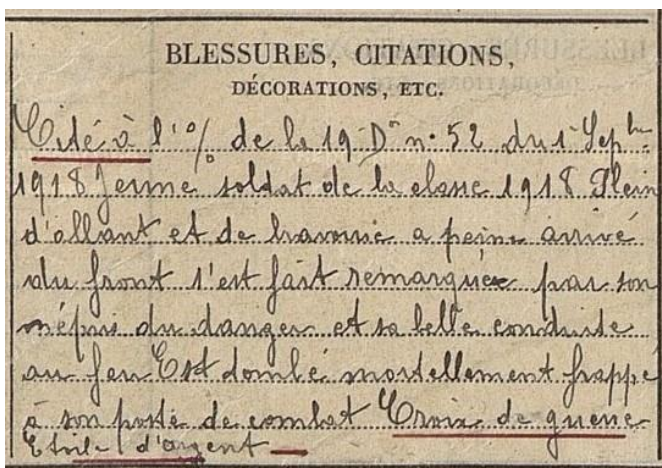 BLESSURES, CITATIONS,
DÉCORATIONS, ETC.
Cité à l'o/o de la 19 Dn n° 52 du 1 Sepbre
1918 Jeune soldat de la classe 1918 Plein
d'allant et de bravoure a peine arrivé
au front s'est fait remarquer par son
mépris du danger et sa belle conduite
au feu Est tombé mortellement frappé
à son poste de combat Croix de guerre
Etoile d'argent